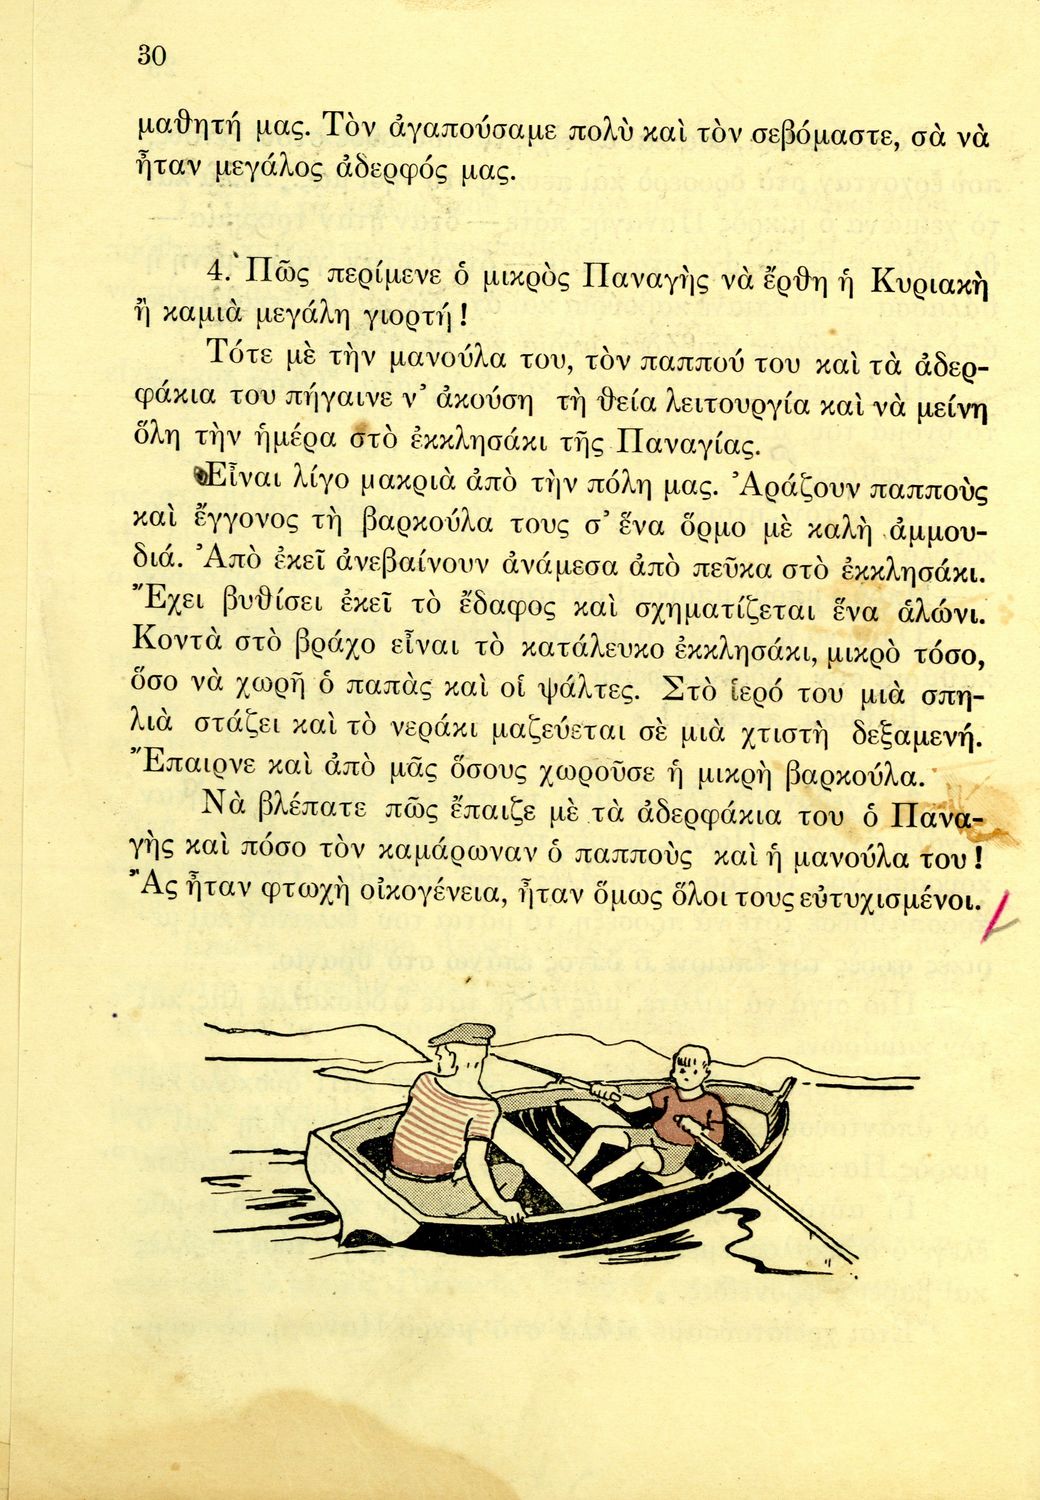 30
μαθητή μας. Τὸν ἀγαπούσαμε πολὺ καὶ τὸν σεβόμαστε, σὰ νὰ
ἦταν μεγάλος ἀδερφός μας.
4. Πῶς περίμενε ὁ μικρὸς Παναγὴς νὰ ἔρθη ἡ Κυριακὴ
ἢ καμιὰ μεγάλη γιορτή!
Τότε μὲ τὴν μανούλα του, τὸν παππού του καὶ τὰ ἀδερ-
φάκια του πήγαινε ν’ ἀκούση τὴ θεία λειτουργία καὶ νὰ μείνη
ὅλη τὴν ἡμέρα στὸ ἐκκλησάκι τῆς Παναγίας.
Εἶναι λίγο μακριὰ ἀπὸ τὴν πόλη μας. Ἀράζουν παπποὺς
καὶ ἔγγονος τὴ βαρκούλα τους σ’ ἕνα ὅρμο μὲ καλὴ ἀμμου-
διά. Ἀπὸ ἐκεῖ ἀνεβαίνουν ἀνάμεσα ἀπὸ πεῦκα στὸ ἐκκλησάκι.
Ἔχει βυθίσει ἐκεῖ τὸ ἔδαφος καὶ σχηματίζεται ἕνα ἁλώνι.
Κοντὰ στὸ βράχο εἶναι τὸ κατάλευκο ἐκκλησάκι, μικρὸ τόσο,
ὅσο νὰ χωρῆ ὁ παπὰς καὶ οἱ ψάλτες. Στὸ ἱερό του μιὰ σπη-
λιὰ στάζει καὶ τὸ νεράκι μαζεύεται σὲ μιὰ χτιστὴ δεξαμενή.
Ἔπαιρνε καὶ ἀπὸ μᾶς ὅσους χωροῦσε ἡ μικρὴ βαρκούλα.
Νὰ βλέπατε πῶς ἔπαιζε μὲ τὰ ἀδερφάκια του ὁ Πανα-
γὴς καὶ πόσο τὸν καμάρωναν ὁ παπποὺς καὶ ἡ μανούλα του!
Ἂς ἦταν φτωχὴ οἰκογένεια, ἦταν ὅμως ὅλοι τους εὐτυχισμένοι.